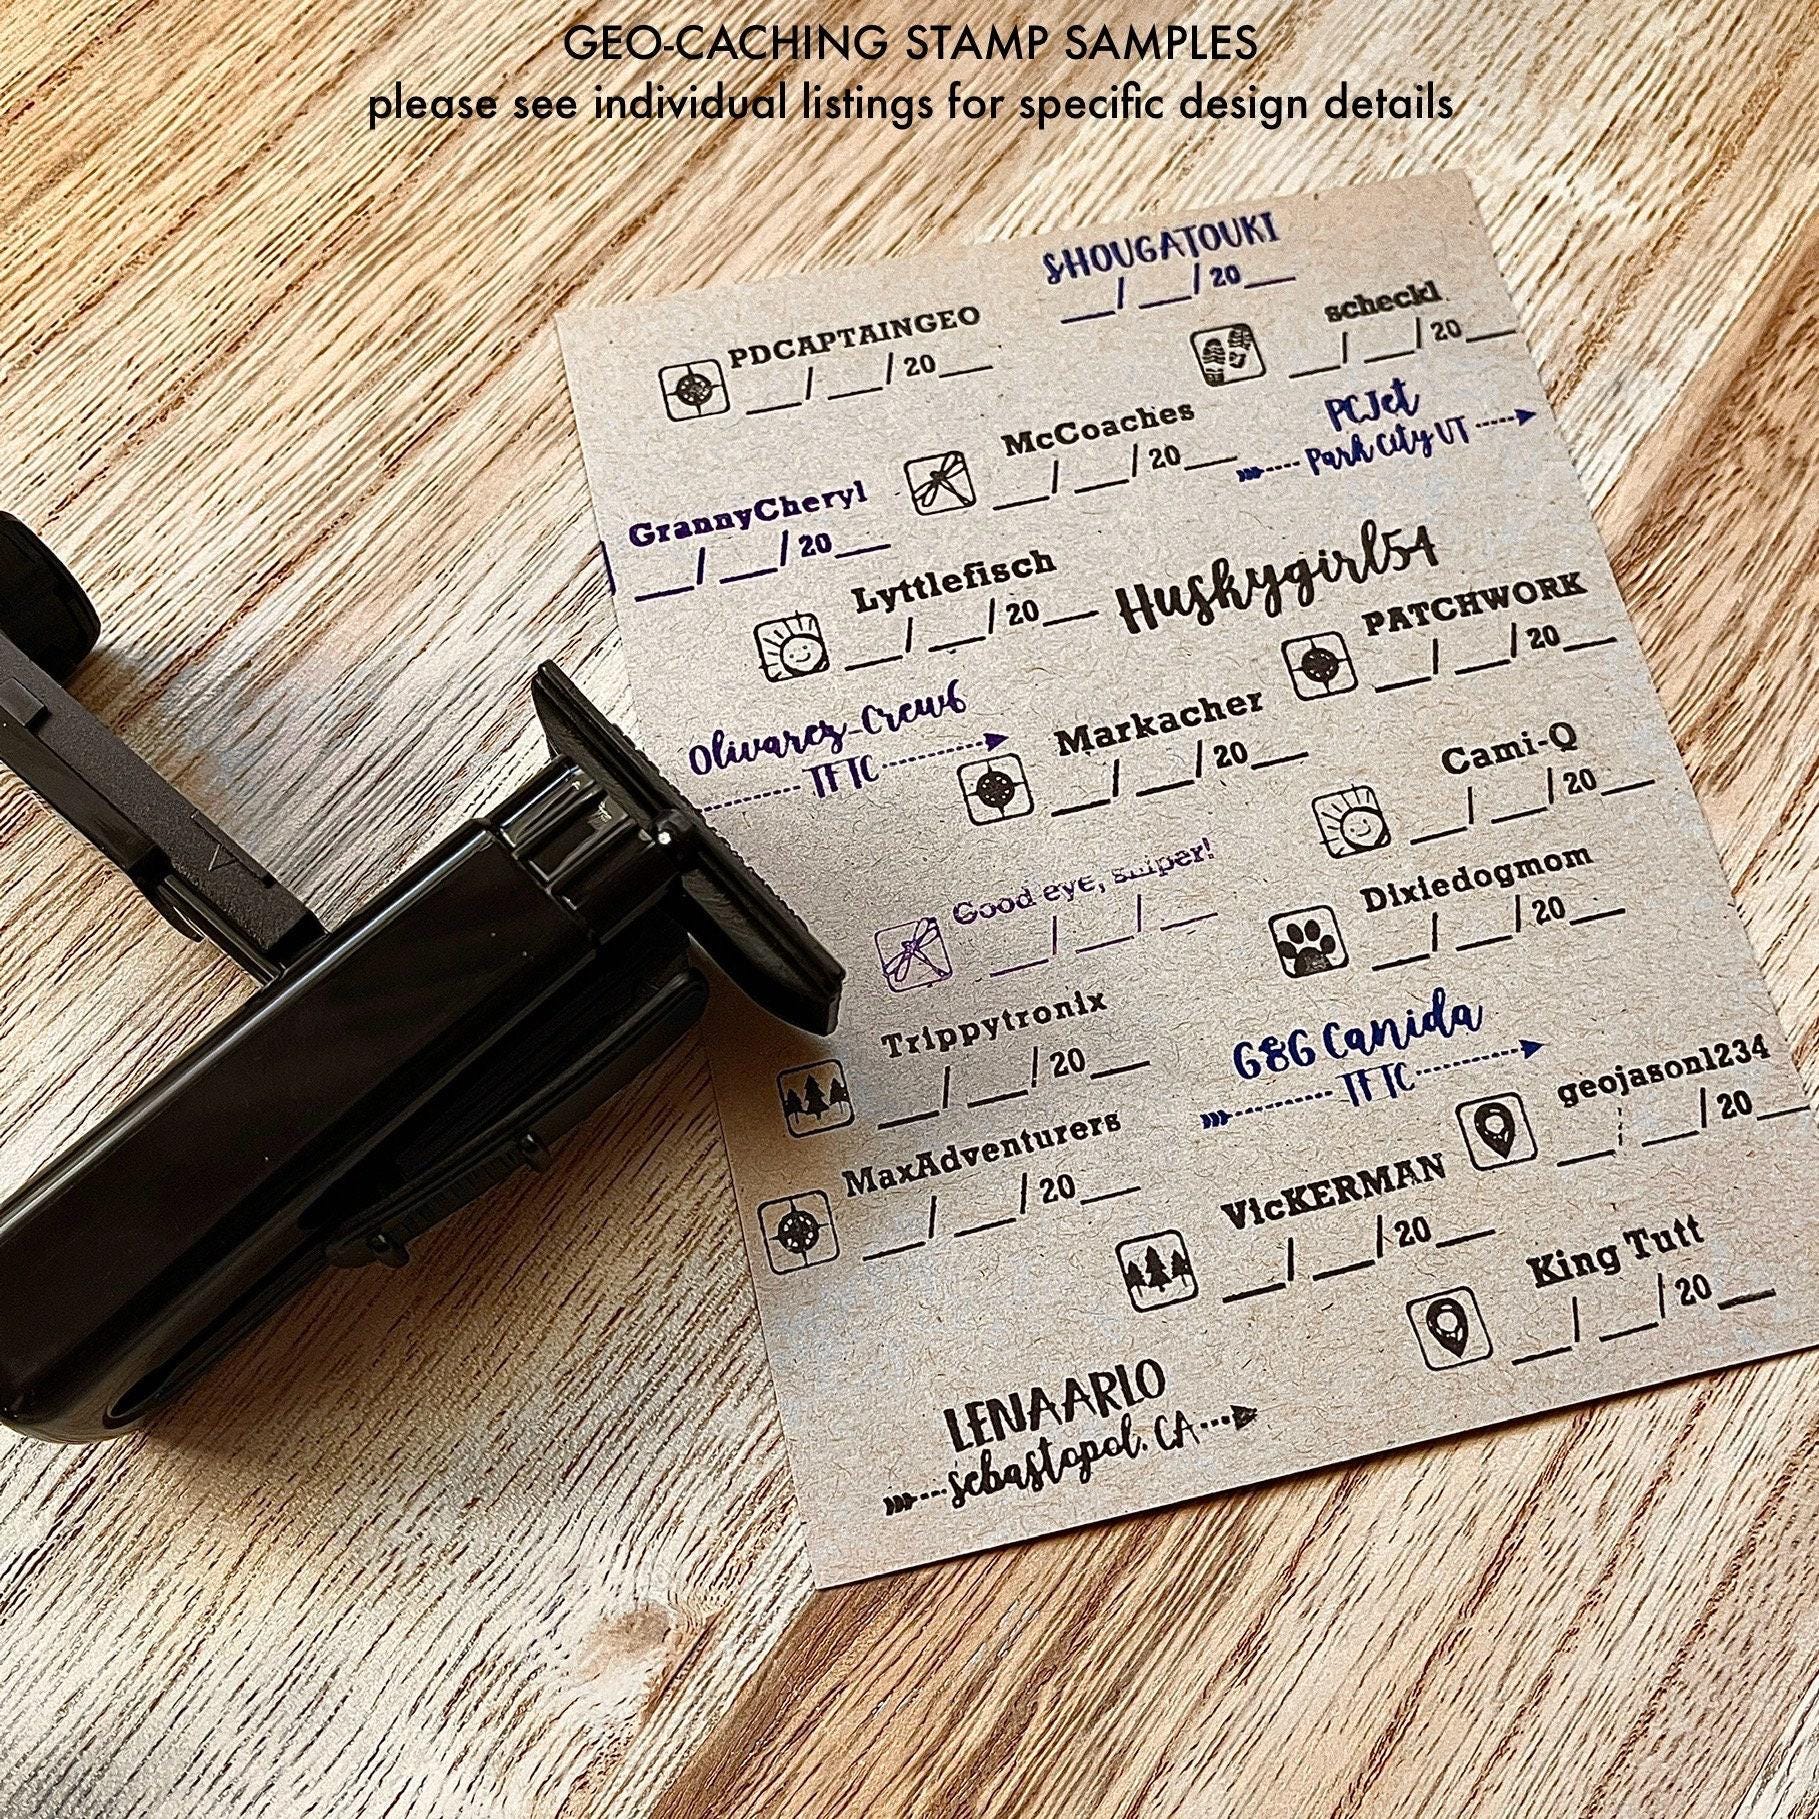 GEO-CACHING STAMP SAMPLES
please see individual listings for specific design details
SHOUGATOUKI
__/__/20__
PDCAPTAINGEO
__/__/20__
scheckl
__/__/20__
McCoaches
__/__/20__
PCJet
Park City UT
GrannyCheryl
__/__/20__
Lyttlefisch
__/__/20__
Huskygirl54
PATCHWORK
__/__/20__
Olivarez-Crew6
TFTC
Markacher
__/__/20__
Cami-Q
__/__/20__
Good eye, sniper!
__/__/__
Dixiedogmom
__/__/20__
Trippytronix
__/__/20__
G&G Canida
TFTC
geojason1234
__/__/20__
MaxAdventurers
__/__/20__
VicKERMAN
__/__/20__
King Tutt
__/__/20__
LENAARLO
sebastopol, CA